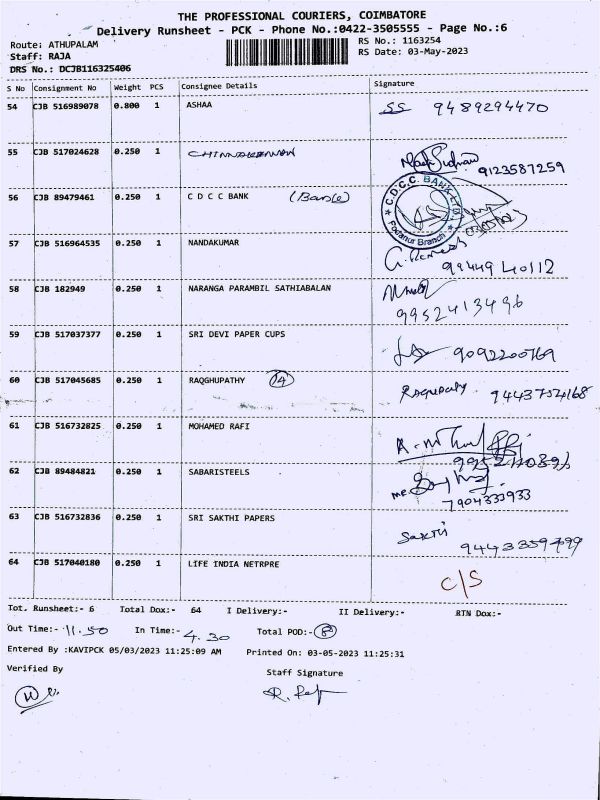 THE PROFESSIONAL COURIERS, COIMBATORE
Delivery Runsheet - PCK - Phone No.:0422-3505555 - Page No.:6
Route: ATHUPALAM RS No.: 1163254
Staff: RAJA RS Date: 03-May-2023
DRS No.: DCJB116325406
S No Consignment No Weight PCS Consignee Details Signature
54 CJB 516989078 0.800 1 ASHAA SS 9489294470
55 CJB 517024628 0.250 1 9123587259
56 CJB 89479461 0.250 1 C D C C BANK
C.D.C.C. BANK LTD.
Podanur Branch
57 CJB 516964535 0.250 1 NANDAKUMAR G. Ramesh
99449 40112
58 CJB 182949 0.250 1 NARANGA PARAMBIL SATHIABALAN
9952413496
59 CJB 517037377 0.250 1 SRI DEVI PAPER CUPS 9092200769
60 CJB 517045685 0.250 1 RAQGHUPATHY 14
61 CJB 516732825 0.250 1 MOHAMED RAFI
62 CJB 89484821 0.250 1 SABARISTEELS
7904333933
63 CJB 516732836 0.250 1 SRI SAKTHI PAPERS Sakthi
64 CJB 517040180 0.250 1 LIFE INDIA NETRPRE C/S
Tot. Runsheet:- 6 Total Dox:- 64 I Delivery:- II Delivery:- RTN Dox:-
Out Time:- 11.50 In Time:- 4.30 Total POD:- 8
Entered By :KAVIPCK 05/03/2023 11:25:09 AM Printed On: 03-05-2023 11:25:31
Verified By Staff Signature